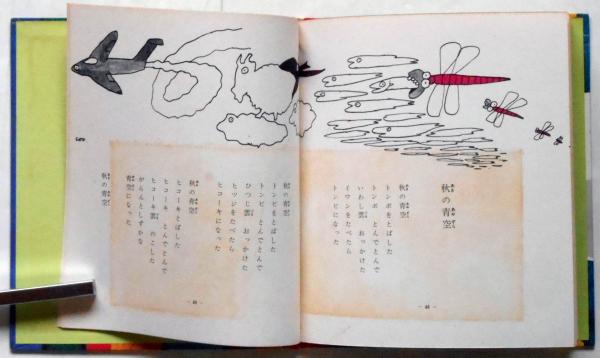 秋の青空
秋の青空
トンボをとばした
トンボ とんでとんで
いわし雲 おっかけた
イワシをたべたら
トンビになった
秋の青空
トンビをとばした
トンビ とんでとんで
ひつじ雲 おっかけた
ヒツジをたべたら
ヒコーキになった
秋の青空
ヒコーキをとばした
ヒコーキ とんでとんで
ヒコーキ雲 のこした
がらんとしずかな
青空になった
秋の青空